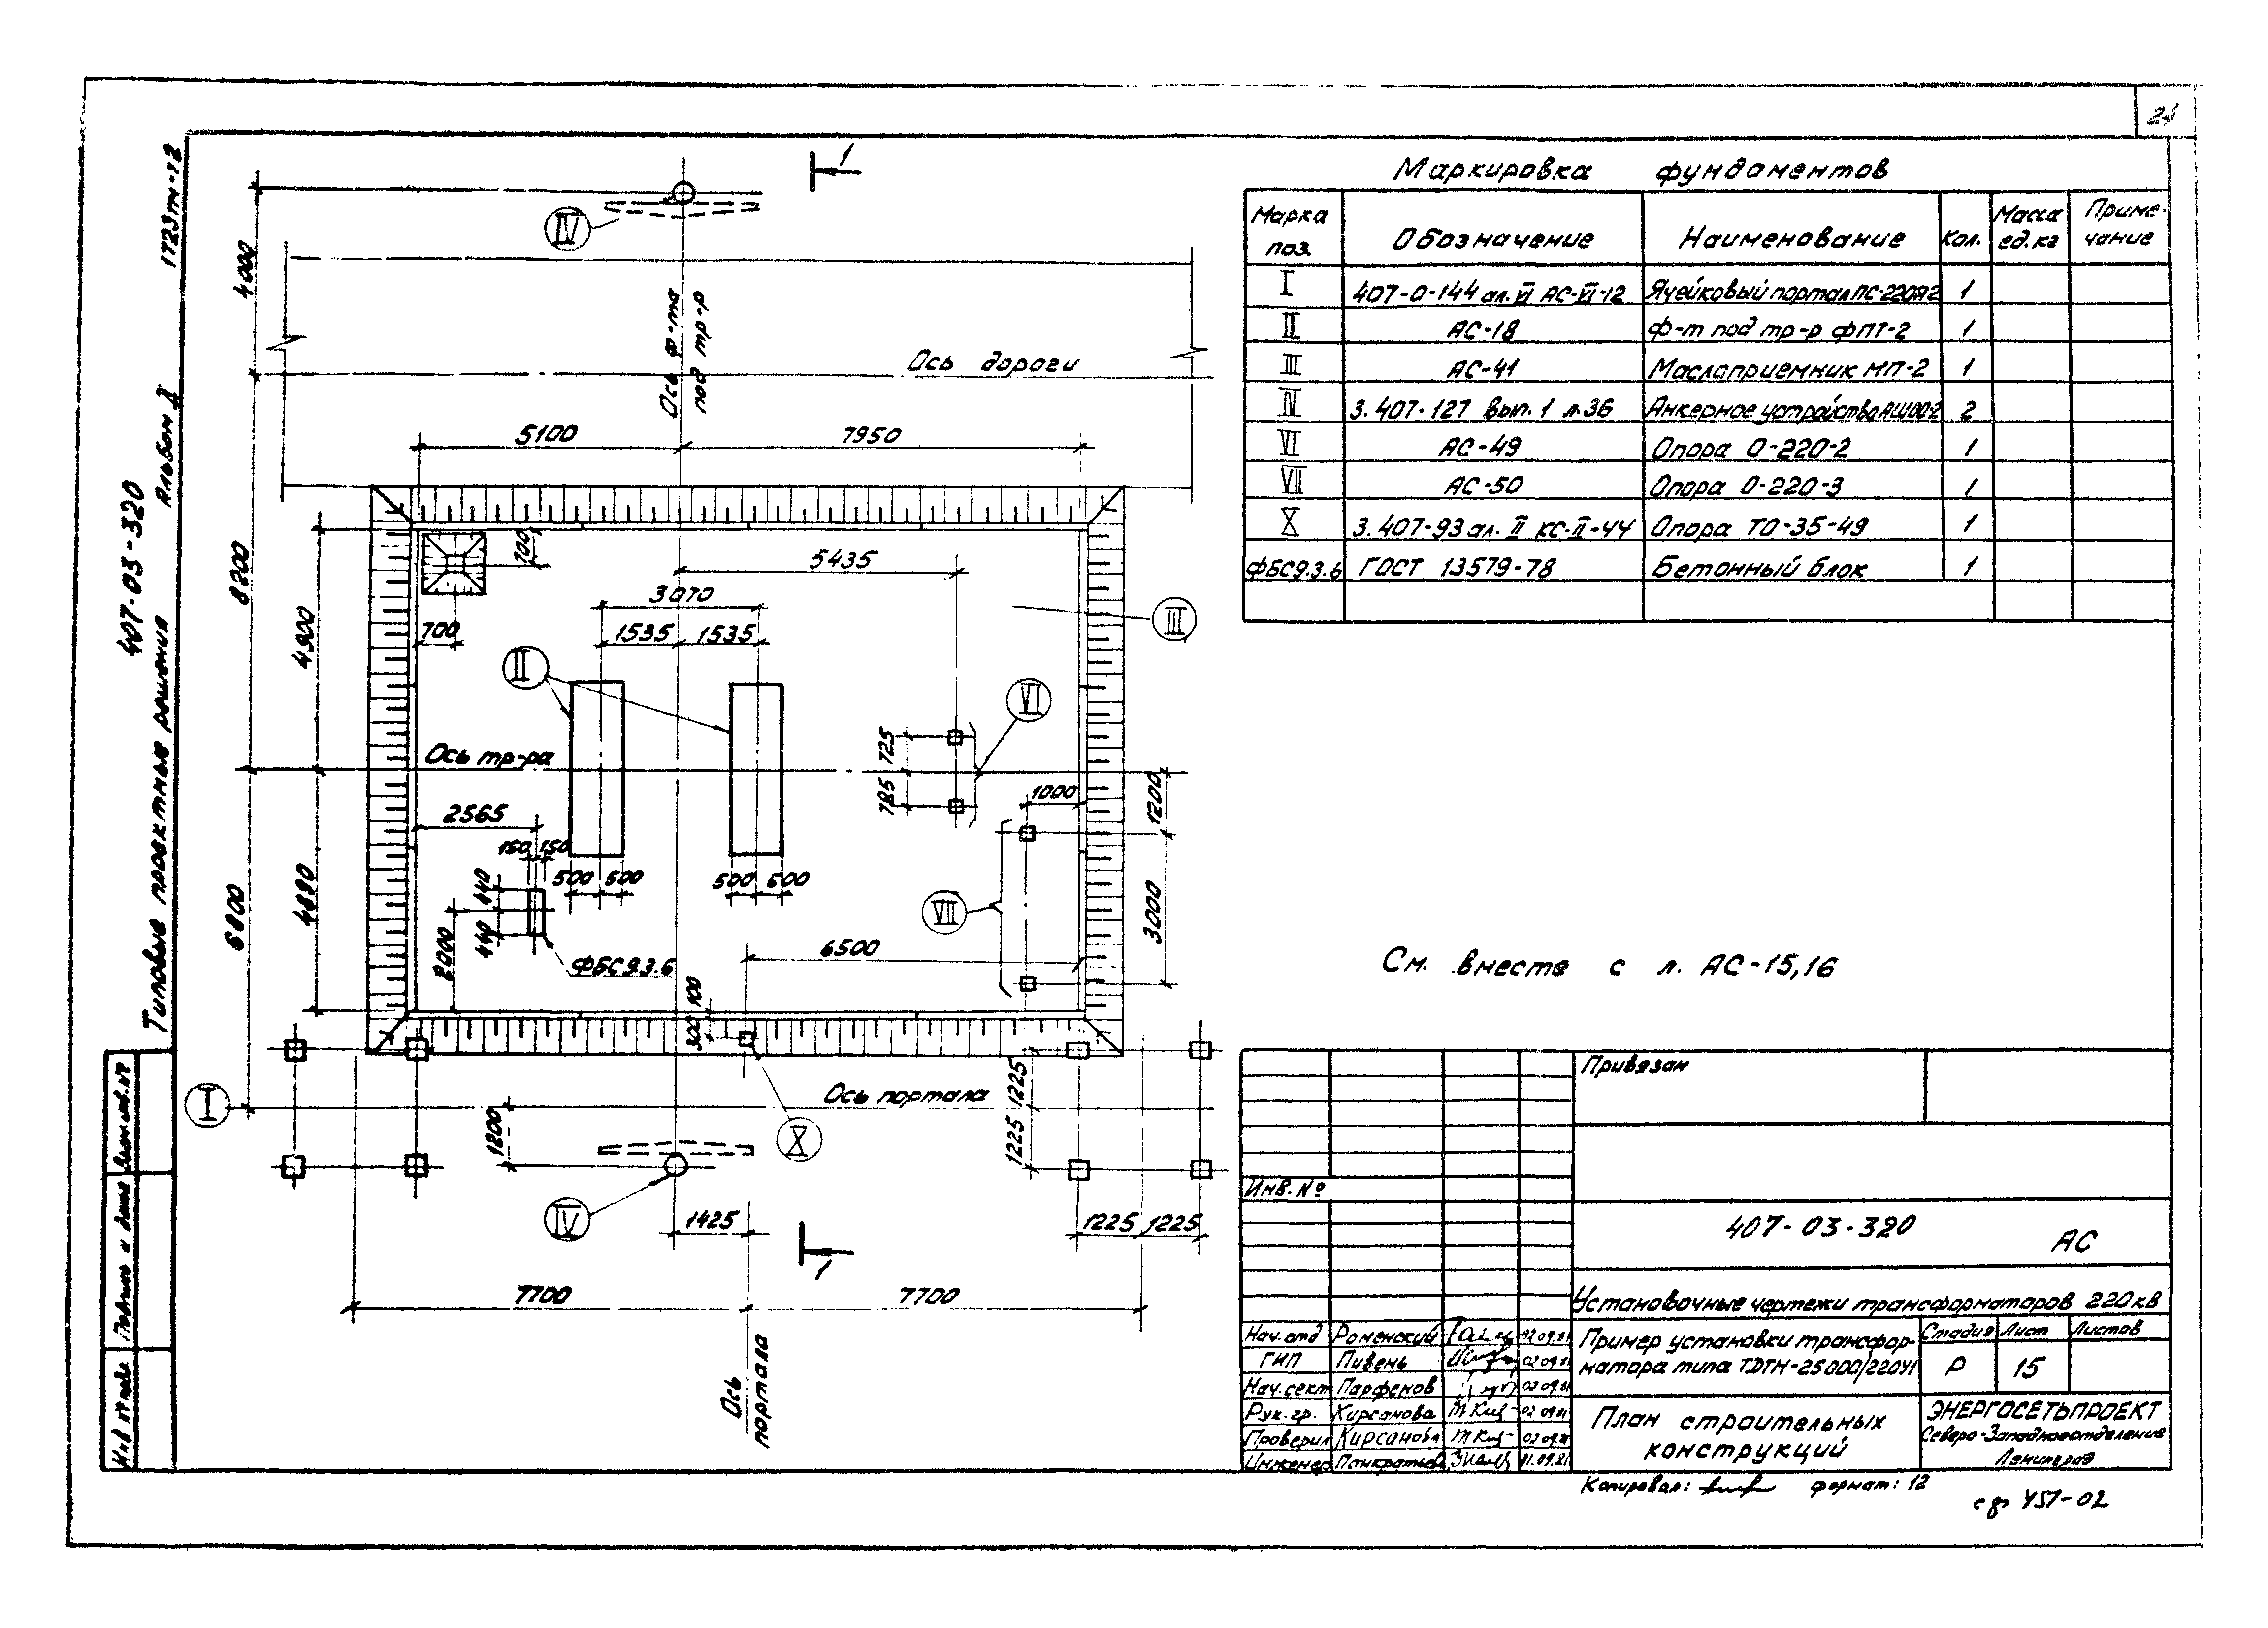 Типовые проектные решения
407-03-320
Альбом II
1723тм-т2
Инв № подл.
Подпись и дата
1
IV
4000
Ось ф-та
под тр-р
Ось дороги
5100
7950
8200
4900
700
5435
3070
700
1535
1535
III
II
VI
725
Ось тр-ра
785
1000
1200
2565
150
150
500
500
500
500
440
440
VII
6800
4890
2000
ФБС9.3.6
6500
3000
100
300
I
1225
1225
Ось портала
1200
X
IV
1425
1225
1225
1
7700
7700
Ось
портала
Маркировка фундаментов
Марка поз. Обозначение Наименование Кол. Масса ед.кг Приме-чание
I 407-0-144 ал. VI АС-VI-12 Ячейковый портал ПС-220Я2 1
II АС-18 ф-т под тр-р ФПТ-2 1
III АС-41 Маслоприемник МП-2 1
IV 3.407-127 вып. 1 л.36 Анкерное устройство 2
VI АС-49 Опора О-220-2 1
VII АС-50 Опора О-220-3 1
X 3.407-93 ал. II КС-II-44 Опора ТО-35-49 1
ФБС9.3.6 ГОСТ 13579-78 Бетонный блок 1
См. вместе с л. АС-15,16
Привязан
Инв. №
407-03-320
АС
Установочные чертежи трансформаторов 220кв
Нач.отд Роменский 02.09.81
ГИП Пивень 02.09.81
Нач.сект Парфенов 02.09.81
Рук.гр. Кирсанова 02.09.81
Проверил Кирсанова 02.09.81
Инженер Панкратьева 01.09.81
Пример установки трансфор-
матора типа ТДТН-25000/220У1
Стадия Лист Листов
Р 15
План строительных
конструкций
ЭНЕРГОСЕТЬПРОЕКТ
Северо-Западное отделение
Ленинград
Копировал:
формат: 12